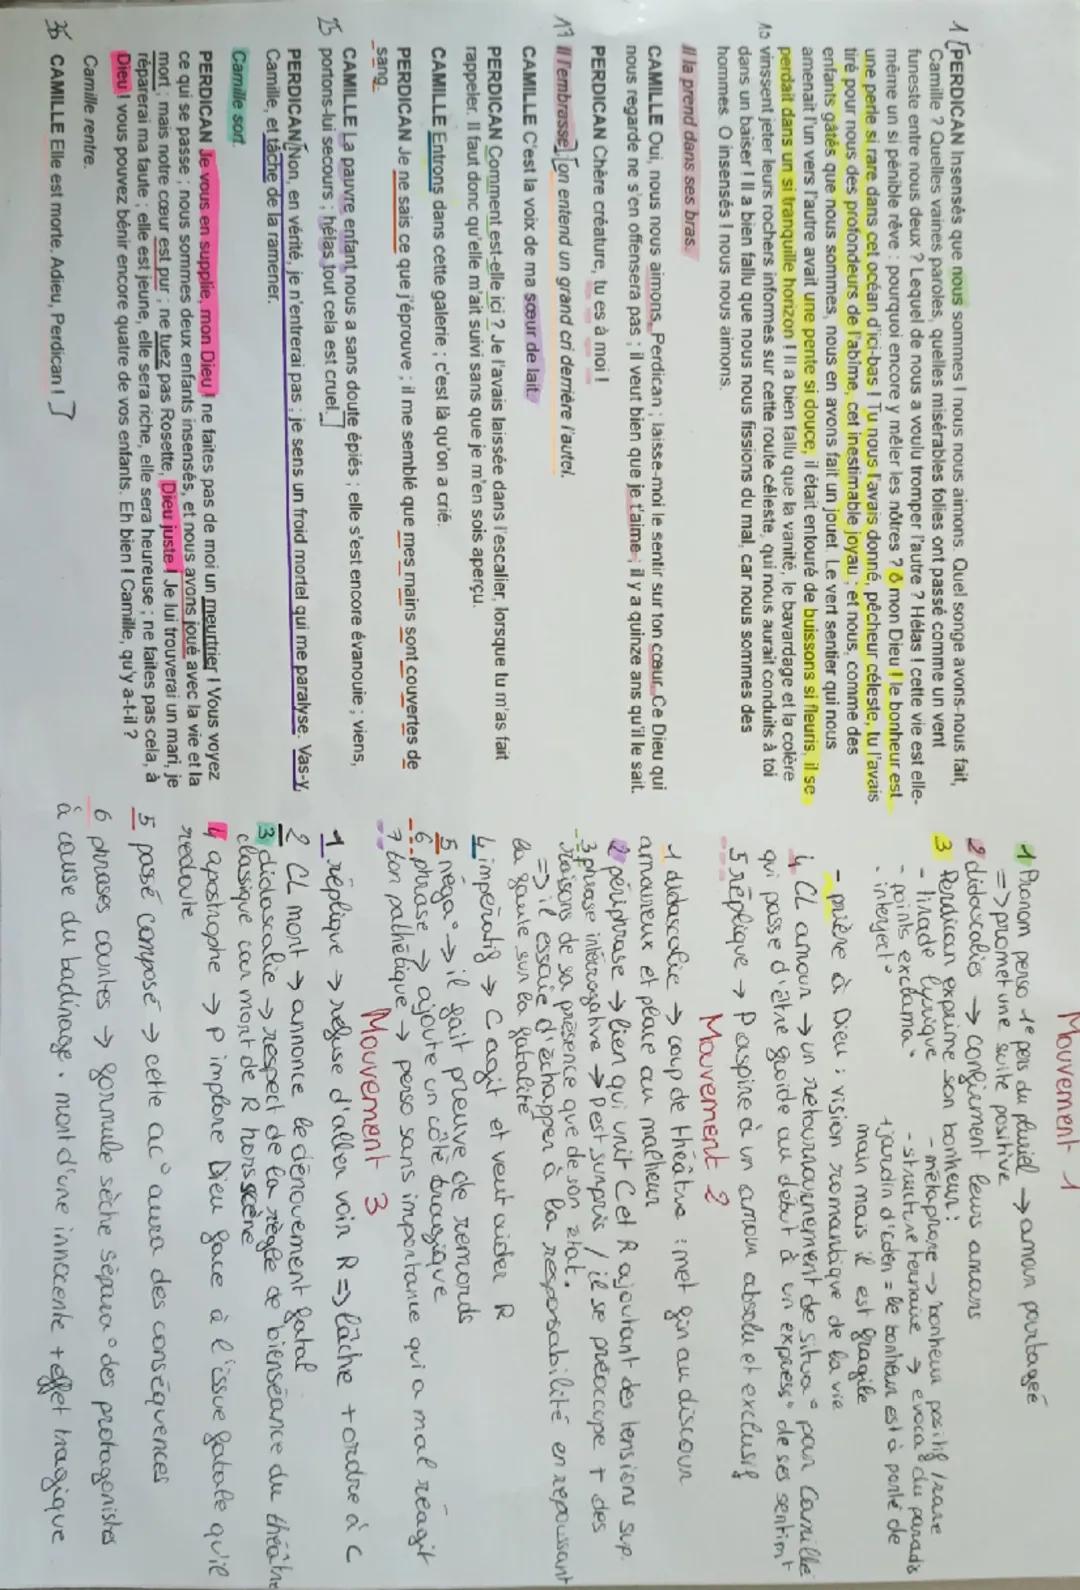 1 [PERDICAN Insensés que nous sommes ! nous nous aimons. Quel songe avons-nous fait,
Camille ? Quelles vaines paroles, quelles misérables folies ont passé comme un vent
funeste entre nous deux ? Lequel de nous a voulu tromper l'autre ? Hélas ! cette vie est elle-
même un si pénible rêve : pourquoi encore y mêler les nôtres ? ô mon Dieu ! le bonheur est
une perle si rare dans cet océan d'ici-bas ! Tu nous l'avais donné, pêcheur céleste, tu l'avais
tiré pour nous des profondeurs de l'abîme, cet inestimable joyau ; et nous, comme des
enfants gâtés que nous sommes, nous en avons fait un jouet. Le vert sentier qui nous
amenait l'un vers l'autre avait une pente si douce, il était entouré de buissons si fleuris, il se
perdait dans un si tranquille horizon ! Il a bien fallu que la vanité, le bavardage et la colère
10 vinssent jeter leurs rochers informes sur cette route céleste, qui nous aurait conduits à toi
dans un baiser ! Il a bien fallu que nous nous fissions du mal, car nous sommes des
hommes. O insensés ! nous nous aimons.
Il la prend dans ses bras.
CAMILLE Oui, nous nous aimons, Perdican ; laisse-moi le sentir sur ton cœur. Ce Dieu qui
nous regarde ne s'en offensera pas ; il veut bien que je t'aime ; il y a quinze ans qu'il le sait.
PERDICAN Chère créature, tu es à moi !
17 Il l'embrasse] [on entend un grand cri derrière l'autel.
CAMILLE C'est la voix de ma sœur de lait.
PERDICAN Comment est-elle ici ? Je l'avais laissée dans l'escalier, lorsque tu m'as fait
rappeler. Il faut donc qu'elle m'ait suivi sans que je m'en sois aperçu.
CAMILLE Entrons dans cette galerie ; c'est là qu'on a crié.
PERDICAN Je ne sais ce que j'éprouve ; il me semble que mes mains sont couvertes de
sang.
CAMILLE La pauvre enfant nous a sans doute épiés ; elle s'est encore évanouie ; viens,
25 portons-lui secours ; hélas tout cela est cruel.]
PERDICAN [Non, en vérité, je n'entrerai pas ; je sens un froid mortel qui me paralyse. Vas-y,
Camille, et tâche de la ramener.
Camille sort.
PERDICAN Je vous en supplie, mon Dieu ! ne faites pas de moi un meurtrier ! Vous voyez
ce qui se passe ; nous sommes deux enfants insensés, et nous avons joué avec la vie et la
mort ; mais notre cœur est pur ; ne tuez pas Rosette, Dieu juste ! Je lui trouverai un mari, je
réparerai ma faute ; elle est jeune, elle sera riche, elle sera heureuse ; ne faites pas cela, ô
Dieu ! vous pouvez bénir encore quatre de vos enfants. Eh bien ! Camille, qu'y a-t-il ?
Camille rentre.
36 CAMILLE Elle est morte. Adieu, Perdican !]
Mouvement 1
1 Pronom perso 1e pers du pluriel → amour partagée
=> promet une suite positive
2 didascalies → confirment leurs amours
3 Perdican exprime son bonheur :
- tirade lyrique - métaphore → bonheur positif / rare
- points exclama° - structure ternaire → évoca° du paradis
- interject° + jardin d'éden = le bonheur est à porté de
main mais il est fragile
- prière à Dieu : vision romantique de la vie
4 CL amour → un retournement de situa° par Camille
qui passe d'être froide au début à un express° de ses sentimt
5 réplique → P aspire à un amour absolu et exclusif
Mouvement 2
1 didascalie → coup de théâtre : met fin au discour
amoureux et place au malheur
2 périphrase → lien qui unit C et R ajoutant des tensions sup.
3 phrase intérrogative → P est surpris / il se préoccupe + des
raisons de sa présence que de son état.
=> il essaie d'échapper à la responsabilité en repoussant
la faute sur la fatalité
4 impératif → C agit et veut aider R
5 néga° → il fait preuve de remords
6 phrase → ajoute un côté tragique
7 ton pathétique → perso sans importance qui a mal réagit
Mouvement 3
1 réplique → refuse d'aller voir R => lâche + ordre à C
2 CL mort → annonce le dénouement fatal
3 didascalie → respect de la règle de bienséance du théâtre
classique car mort de R hors scène
4 apostrophe → P implore Dieu face à l'issue fatale qu'il
redoute
5 passé composé → cette ac° aura des conséquences
6 phrases courtes → formule sèche sépara° des protagonistes
à cause du badinage. mort d'une innocente + effet tragique